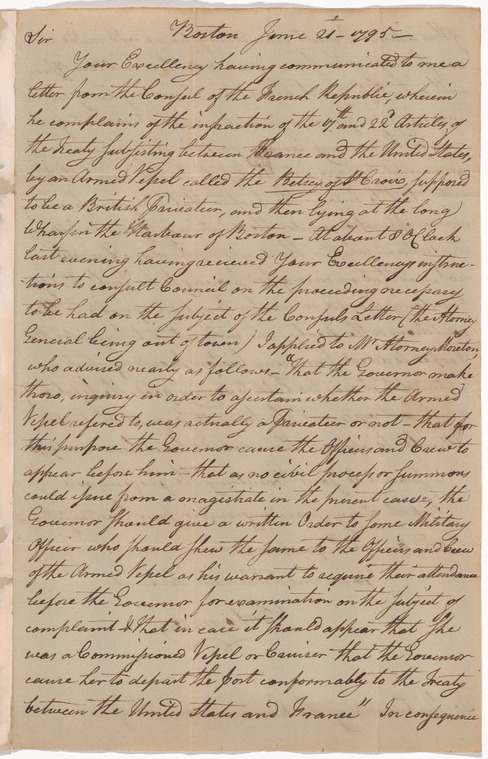 Boston June 21st 1795 —
Sir
Your Excellency having communicated to me a
letter from the Consul of the French Republic, wherein
he complains of the infraction of the 17th and 22d Articles, of
the treaty subsisting between France and the United States,
by an Armed Vessel called the Betsey of St Croix, supposed
to be a British Privateer, and then lying at the long
Wharf in the Harbour of Boston — At about 8 OClock
last evening having received Your Excellencys instruc-
tions to consult Council on the proceeding necessary
to be had on the subject of the Consuls Letter (the Attorney
General being out of town) I applied to Mr Attorney Moreton,
who advised nearly as follows — "That the Governor make
thoro, inquiry in order to ascertain whether the Armed
Vessel refered to, was actually a Privateer or not — that for
this purpose the Governor cause the Officers and Crew to
appear before him — that as no civil process or summons
could issue from a magistrate in the present case, the
Governor should give a written Order to some Military
Officer who should shew the same to the Officers and Crew
of the Armed Vessel as his warrant to require their attendance
before the Governor for examination on the subject of
complaint & that in case it should appear that She
was a Commissioned Vessel or Cruiser that the Governor
cause her to depart the port conformably to the Treaty
between the United States and France" In consequence